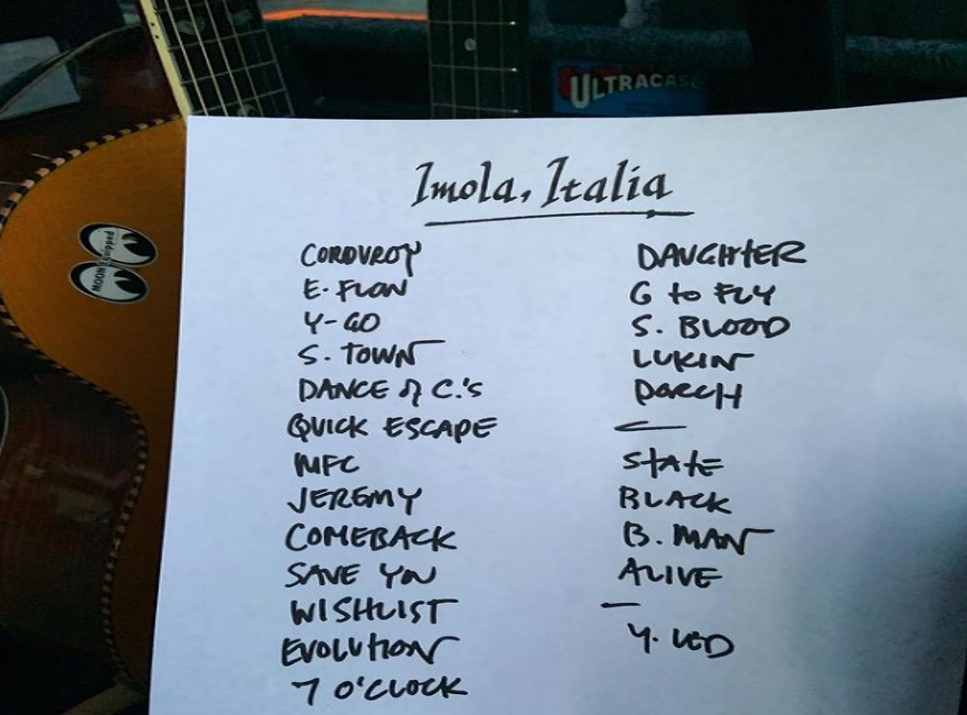 ULTRACASE
MOON Equipped
Imola, Italia
CORDUROY
E. FLOW
Y-GO
S. TOWN
DANCE of C.'S
QUICK ESCAPE
MFC
JEREMY
COMEBACK
SAVE YOU
WISHLIST
EVOLUTION
7 O'CLOCK
DAUGHTER
G to FLY
S. BLOOD
LUKIN
PORCH
—
STATE
BLACK
B. MAN
ALIVE
—
Y. LED